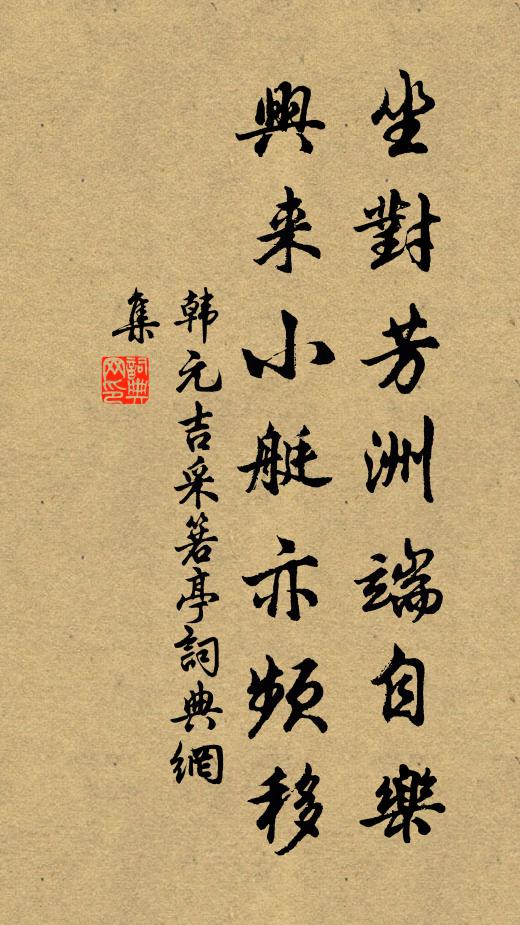 坐對芳洲端自樂
興来小艇亦頻移
韩元吉采箬亭詞典網
集
詞典
网印